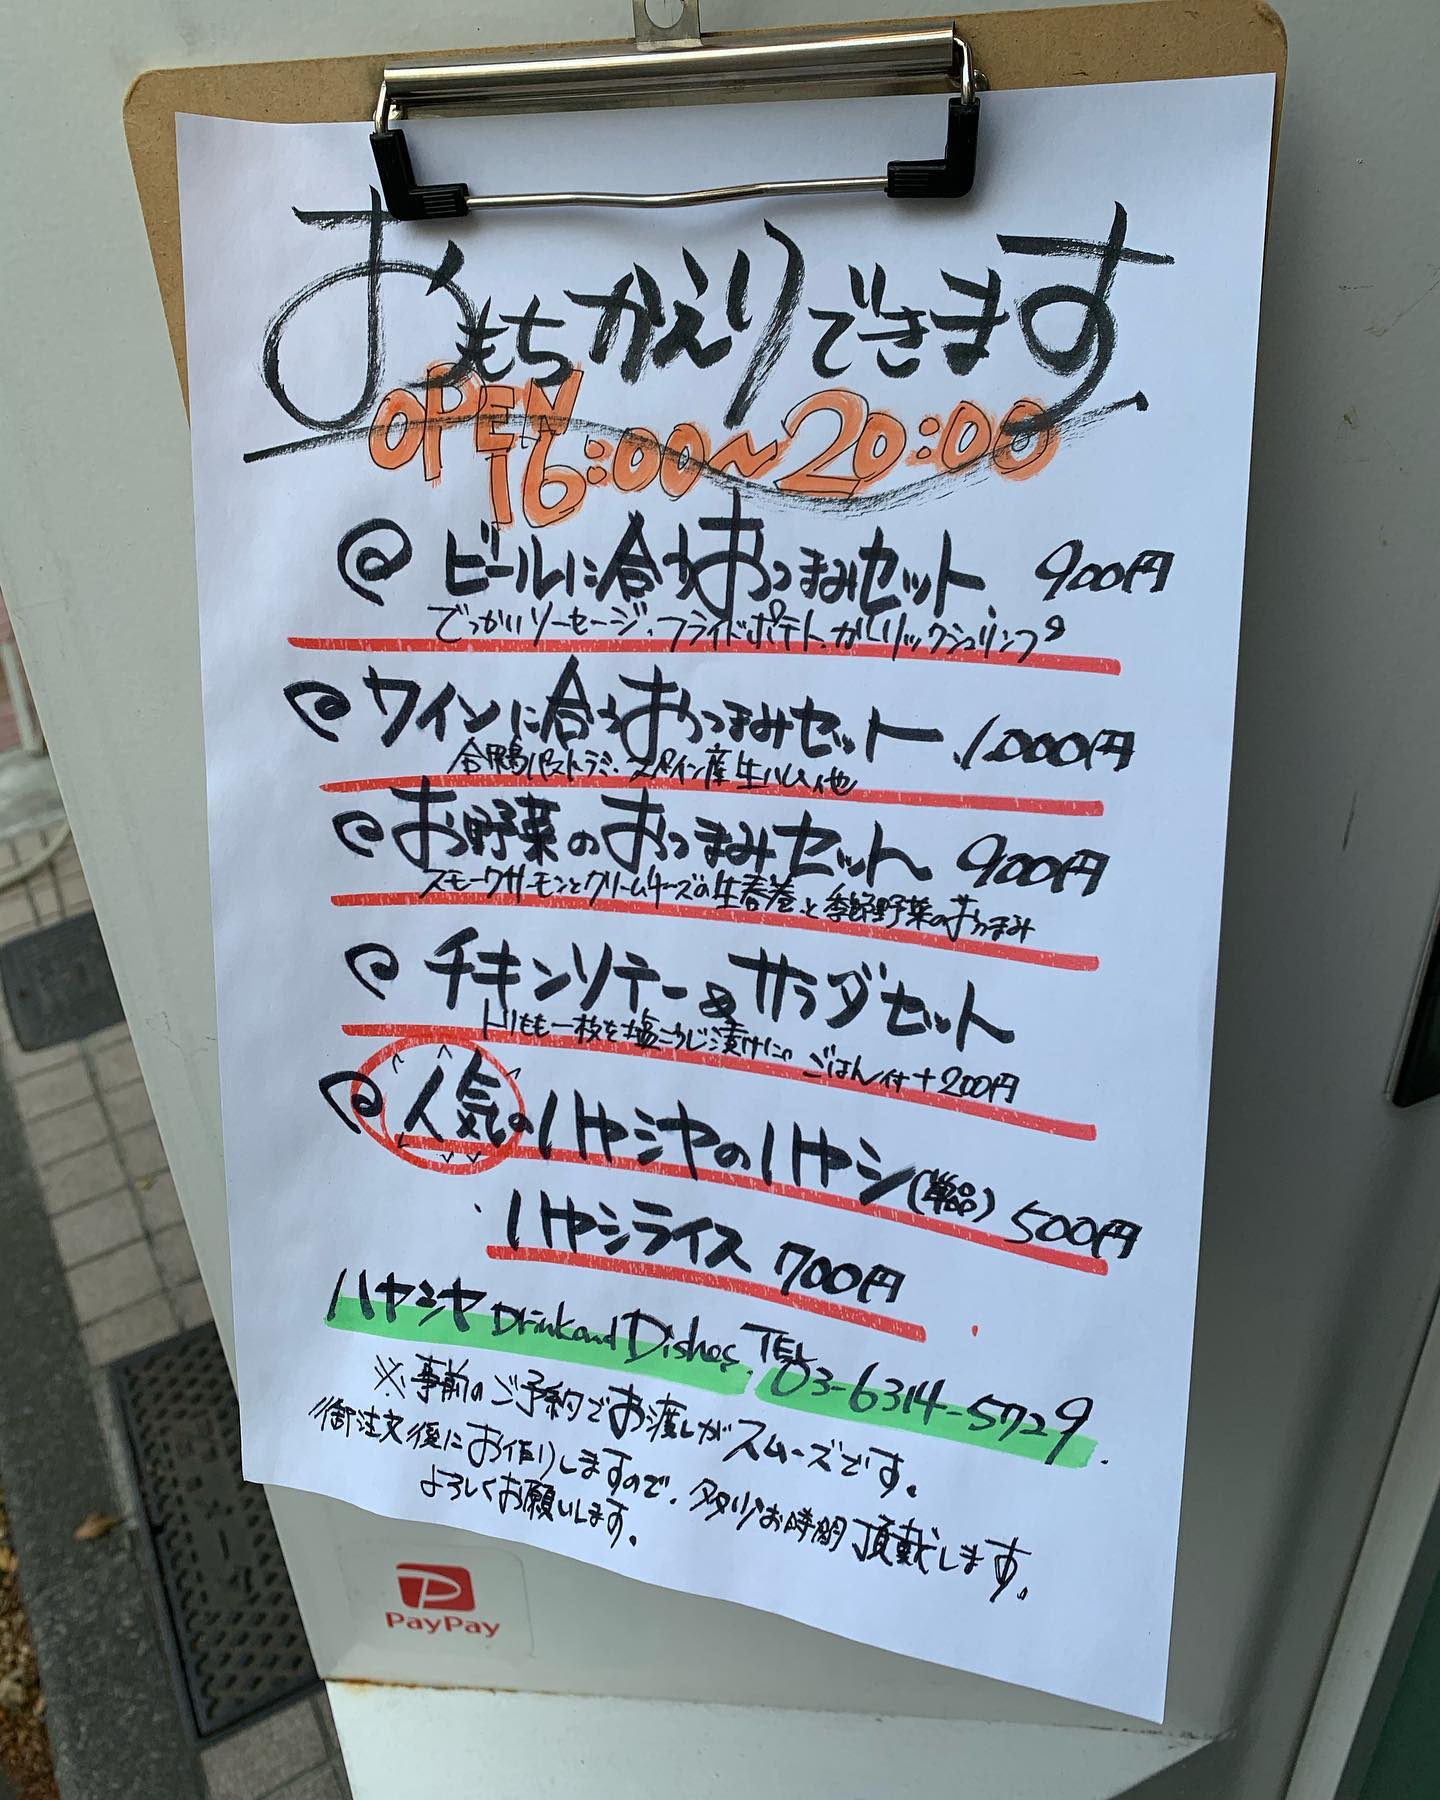 おもちかえりできます
OPEN 16:00~20:00
ビールに合うおつまみセット 900円
でっかいソーセージ、フライドポテト、ガーリックシュリンプ
ワインに合うおつまみセット 1,000円
合鴨パストラミ、スペイン産生ハム、他
お野菜のおつまみセット 900円
スモークサーモンとクリームチーズの生春巻と季節野菜のおつまみ
チキンソテー&サラダセット
トリもも一枚を塩こうじ漬けに。 ごはん付+200円
人気のハヤシヤのハヤシ(単品) 500円
ハヤシライス 700円
ハヤシヤ Drink and Dishes. TEL 03-6314-5729.
※事前のご予約でお渡しがスムーズです。
御注文後にお作りしますので、多少お時間頂戴します。
よろしくお願いします。
PayPay